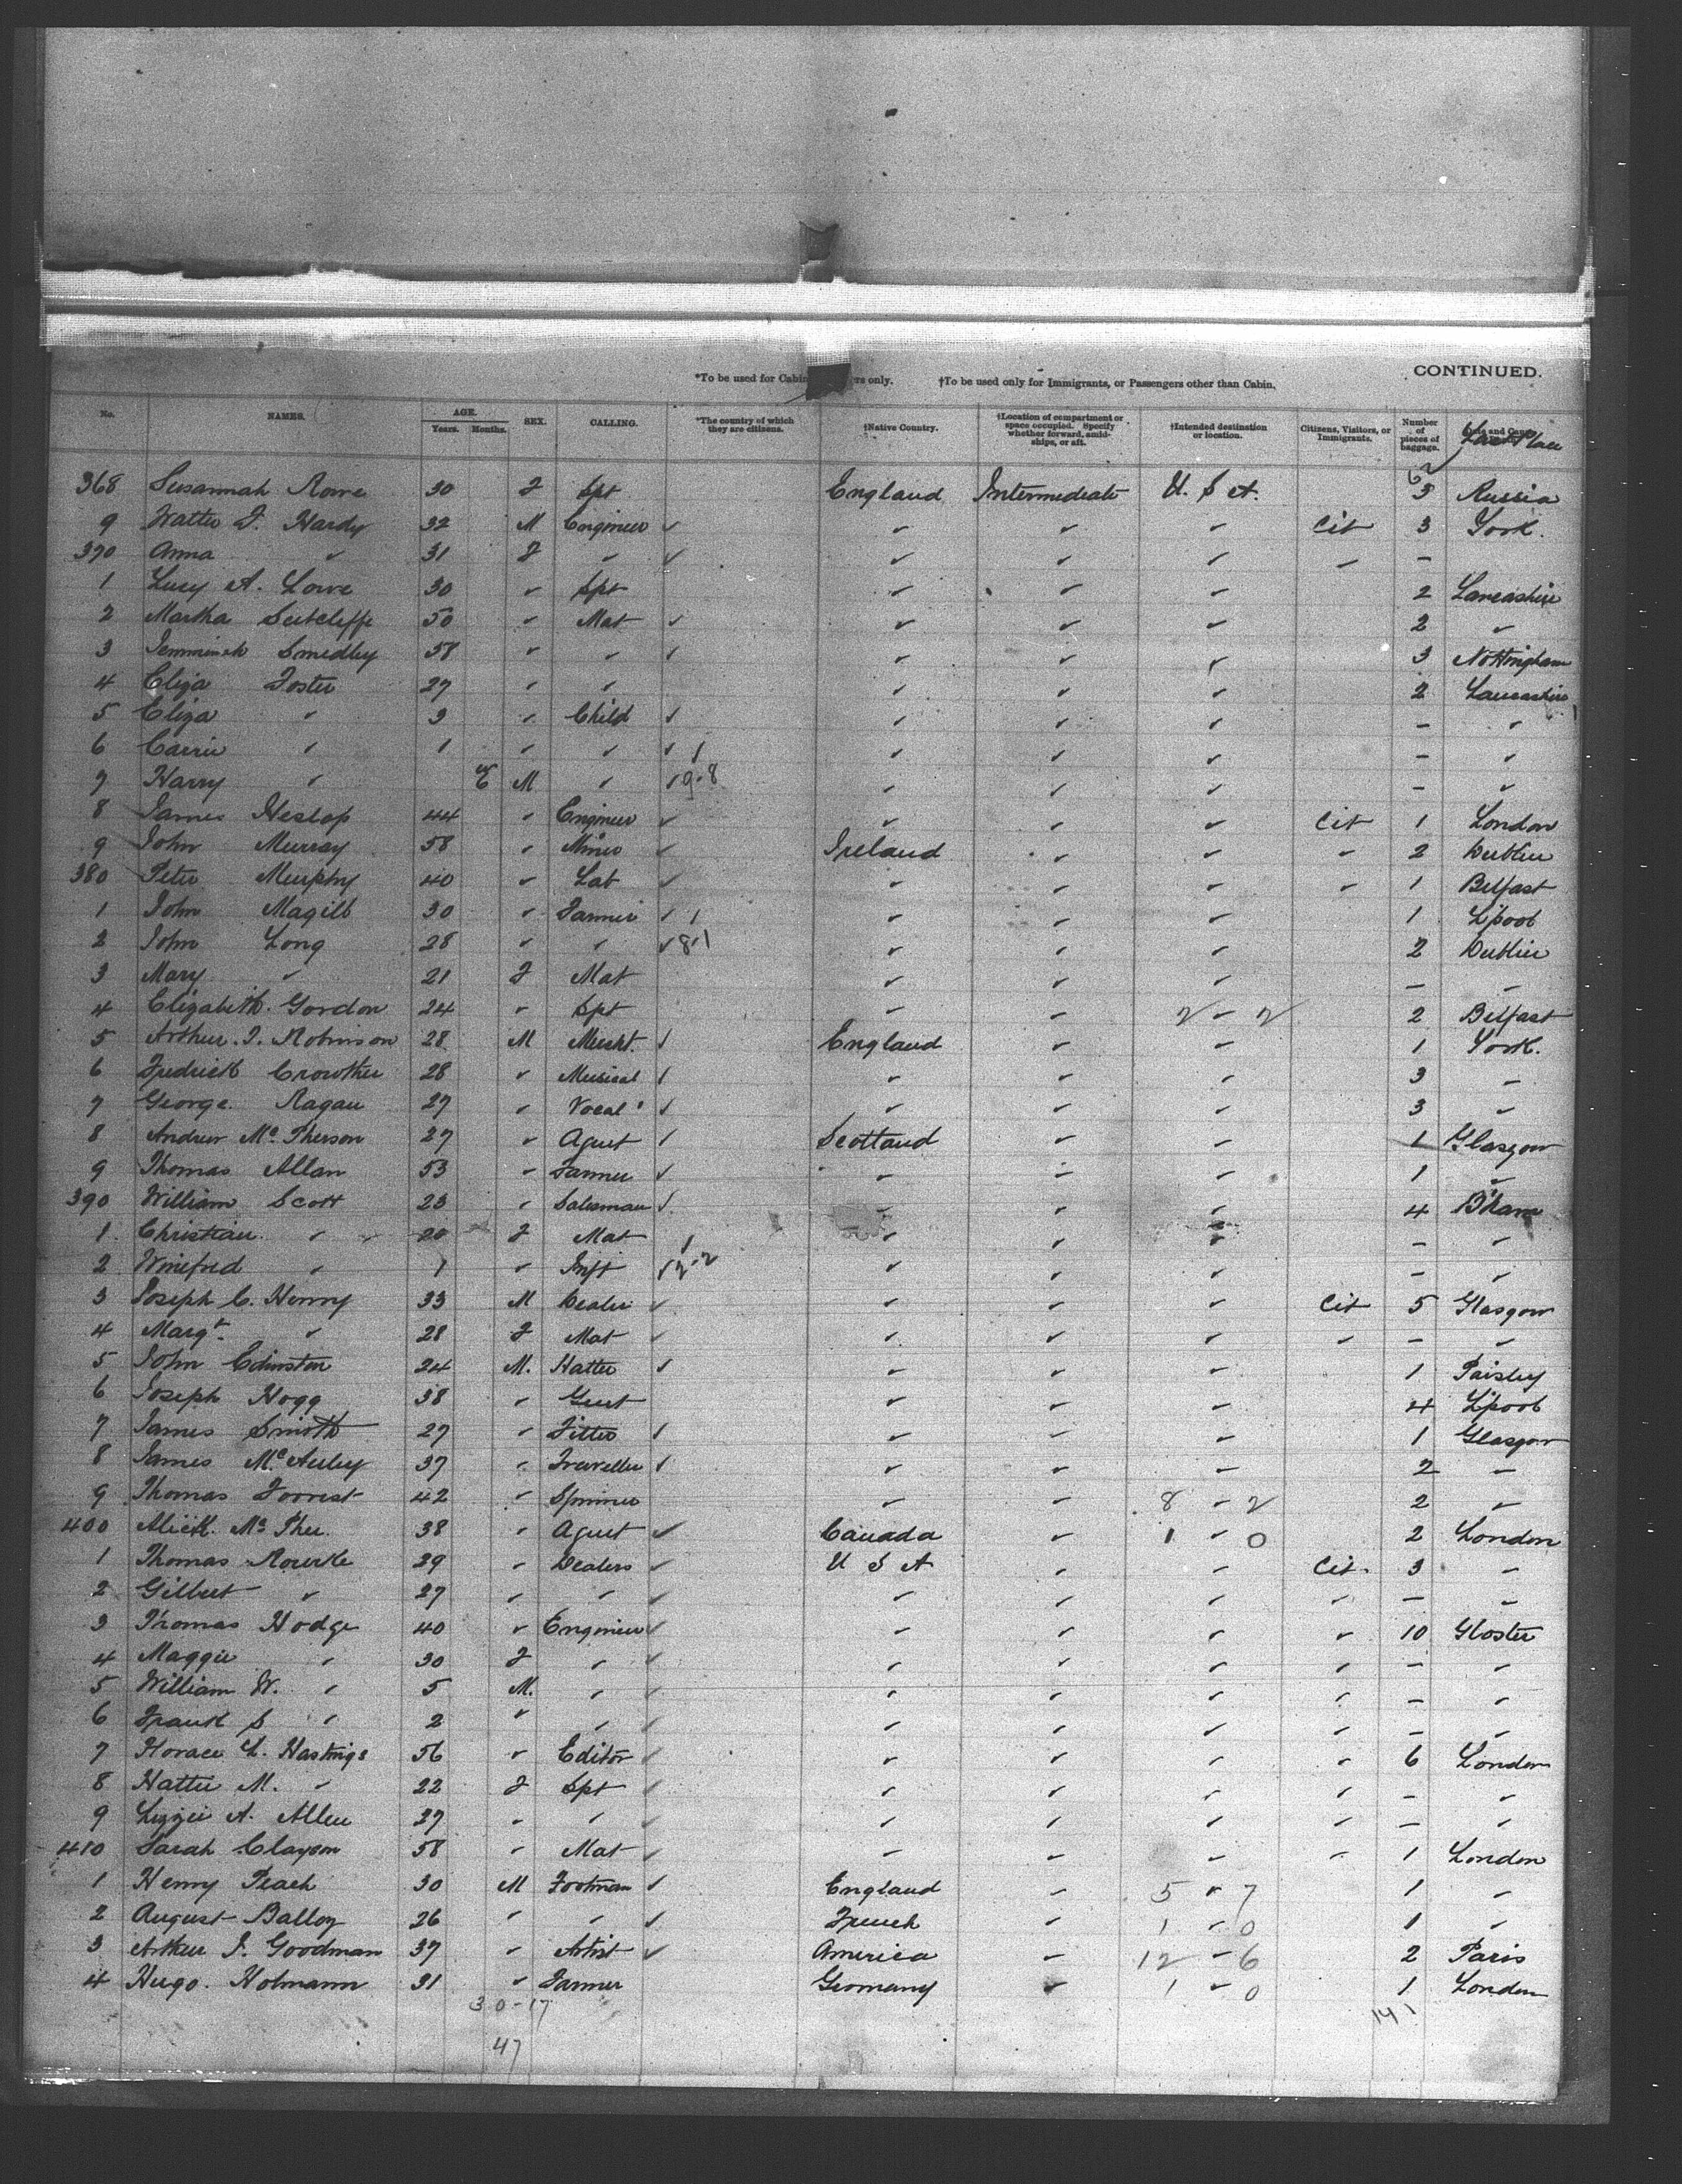 CONTINUED.
*To be used for Cabin ers only. †To be used only for Immigrants, or Passengers other than Cabin.
No. NAMES. AGE. Years. Months. SEX. CALLING. *The country of which they are citizens. †Native Country. †Location of compartment or space occupied. Specify whether forward, amidships, or aft. †Intended destination or location. Citizens, Visitors, or Immigrants. Number of pieces of baggage. Last Place
368 Susannah Rowe 30 F Spt England Intermediate U. S A. 3 Russia
9 Walter F. Hardy 32 M Engineer ✓ ✓ ✓ ✓ Cit 3 York.
370 Anna ✓ 31 F ✓ ✓ ✓ ✓ ✓ – –
1 Lucy A. Lowe 30 ✓ Spt ✓ ✓ ✓ 2 Lancashire
2 Martha Sutcliffe 50 ✓ Mat ✓ ✓ ✓ ✓ 2 ✓
3 Jemmimah Smedley 58 ✓ ✓ ✓ ✓ ✓ ✓ 3 Nottingham
4 Eliza Foster 27 ✓ ✓ ✓ ✓ ✓ 2 Lancashire
5 Eliza ✓ 3 ✓ Child ✓ ✓ ✓ ✓ – ✓
6 Carrie ✓ 1 ✓ ✓ ✓ 1 ✓ ✓ ✓ – ✓
7 Harry ✓ M ✓ ✓ 9-8 ✓ ✓ ✓ – ✓
8 James Heslop 44 ✓ Engineer ✓ ✓ ✓ ✓ Cit 1 London
9 John Murray 58 ✓ Miner ✓ Ireland ✓ ✓ – 2 Dublin
380 Peter Murphy 40 ✓ Lab ✓ ✓ ✓ ✓ ✓ 1 Belfast
1 John Magill 30 ✓ Farmer ✓ 1 ✓ ✓ ✓ 1 L'pool
2 John Long 28 ✓ ✓ ✓ 8-1 ✓ ✓ ✓ 2 Dublin
3 Mary ✓ 21 F Mat ✓ ✓ ✓ – –
4 Elizabeth Gordon 24 ✓ Spt ✓ ✓ 2 - 2 2 Belfast
5 Arthur. J. Robinson 28 M Mercht. ✓ England ✓ ✓ 1 York.
6 Fredrick Crowther 28 ✓ Musical ✓ ✓ ✓ ✓ 3 –
7 George Ragan 27 ✓ Vocal ✓ ✓ ✓ ✓ 3 ✓
8 Andrew McPherson 27 ✓ Agent ✓ Scotland ✓ ✓ 1 Glasgow
9 Thomas Allan 53 ✓ Farmer ✓ ✓ ✓ ✓ 1 ✓
390 William Scott 23 ✓ Salesman ✓ ✓ ✓ ✓ 4 B'ham
1 Christian ✓ 20 F Mat 1 ✓ ✓ ✓ – ✓
2 Winifred ✓ 1 ✓ Inft ✓ 2-2 ✓ ✓ ✓ – ✓
3 Joseph C. Henry 33 M Dealer ✓ ✓ ✓ ✓ Cit 5 Glasgow
4 Margt. ✓ 28 F Mat ✓ ✓ ✓ ✓ ✓ – ✓
5 John Edmston 24 M. Hatter ✓ ✓ ✓ ✓ 1 Paisley
6 Joseph Hogg 38 ✓ Gent ✓ ✓ ✓ 4 L'pool
7 James Smith 27 ✓ Fitter ✓ ✓ ✓ ✓ 1 Glasgow
8 James McAuley 37 ✓ Traveller ✓ ✓ ✓ ✓ 2 –
9 Thomas Forrest 42 ✓ Spinner ✓ ✓ 8 - 2 2 ✓
400 38 ✓ Agent ✓ Canada ✓ 1 - 0 2 London
1 Thomas Rourke 29 ✓ Dealers ✓ U S A ✓ ✓ Cit. 3 –
2 Gilbert ✓ 27 ✓ ✓ ✓ ✓ ✓ ✓ ✓ – –
3 Thomas Hodge 40 ✓ Engineer ✓ ✓ ✓ ✓ ✓ 10 Gloster
4 Maggie ✓ 30 F ✓ ✓ ✓ ✓ ✓ ✓ – ✓
5 William W. ✓ 5 M. ✓ ✓ ✓ ✓ ✓ ✓ – ✓
6 Frank S ✓ 2 ✓ ✓ ✓ ✓ ✓ ✓ ✓ – ✓
7 Horace L. Hastings 56 ✓ Editor ✓ ✓ ✓ ✓ ✓ 6 London
8 Hattie M. ✓ 22 F Spt ✓ ✓ ✓ ✓ ✓ – ✓
9 Lizzie A. Allen 37 ✓ ✓ ✓ ✓ ✓ ✓ ✓ – ✓
410 Sarah Clayson 58 ✓ Mat ✓ ✓ ✓ ✓ ✓ 1 London
1 Henry Peach 30 M Footman ✓ England ✓ 5 ✓ 7 1 –
2 August Balloy 26 ✓ ✓ ✓ French ✓ 1 - 0 1 ✓
3 Arthur J. Goodman 37 ✓ Artist ✓ America ✓ 12 - 6 2 Paris
4 Hugo. Holmann 31 ✓ Farmer Germany ✓ 1 - 0 1 London
30-17 141
47